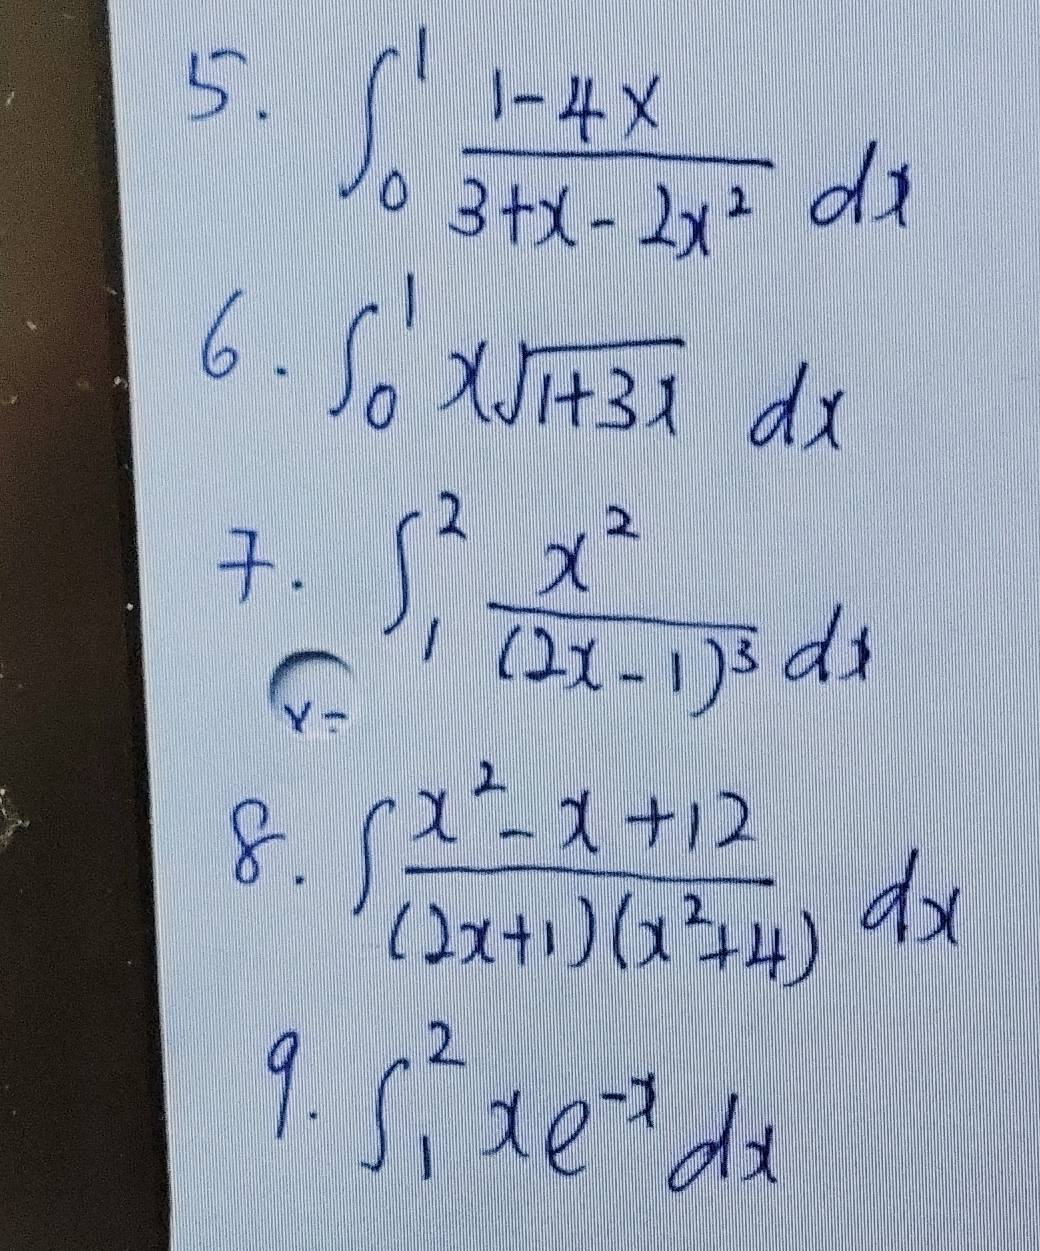 5. ∫₀¹ (1-4x)/(3+x-2x²) dx
6. ∫₀¹ x√(1+3x) dx
7. ∫₁² x²/(2x-1)³ dx
8. ∫ (x²-x+12)/((2x+1)(x²+4)) dx
9. ∫₁² xe⁻ˣ dx